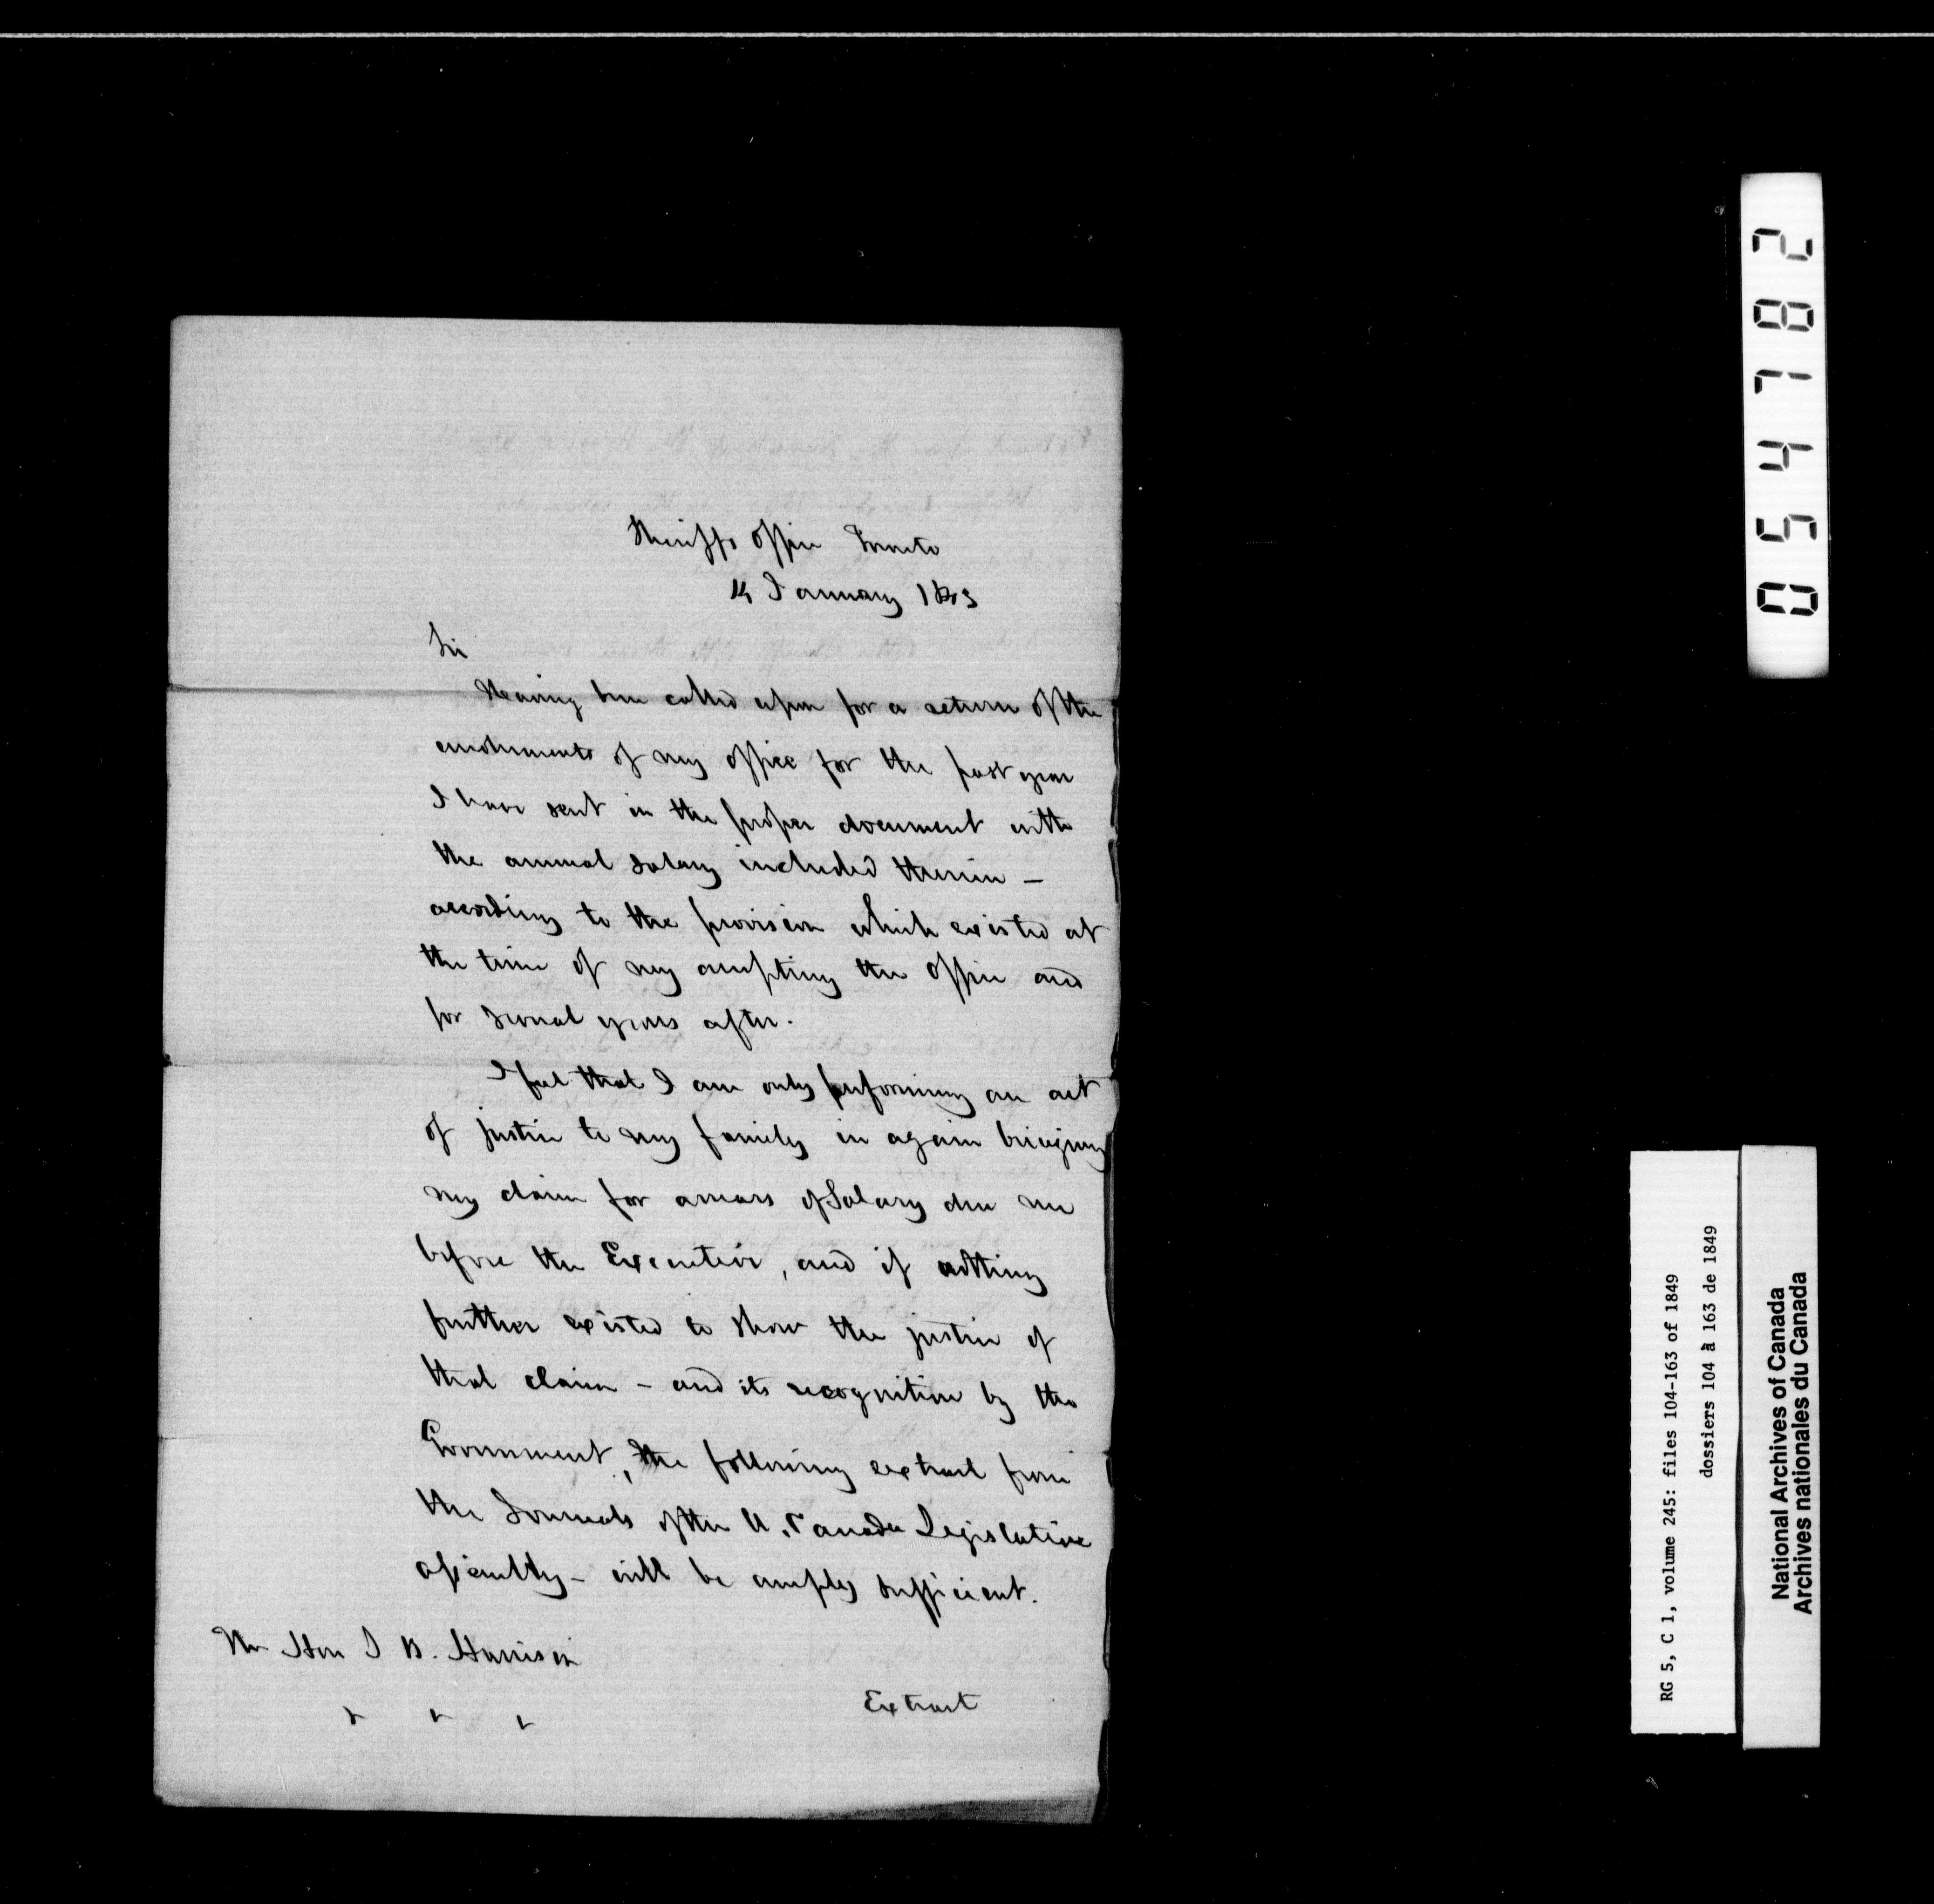 Sheriffs Office Toronto
14 January 1843
Sir
Having been called upon for a return of the
emoluments of my office for the past year
I have sent in the proper document with
the annual salary included therein –
according to the provision which existed at
the time of my accepting the office and
for several years after.
I feel that I am only performing an act
of justice to my family in again bringing
my claim for arrears of Salary due me
before the Executive, and if nothing
further existed to show the justice of
that claim – and its recognition by the
Government, the following extract from
the Journals of the U. Canada Legislative
assembly – will be amply sufficient.
The Hon S B. Harrison
Extract
054782
RG 5, C 1, volume 245: files 104-163 of 1849
dossiers 104 à 163 de 1849
National Archives of Canada
Archives nationales du Canada